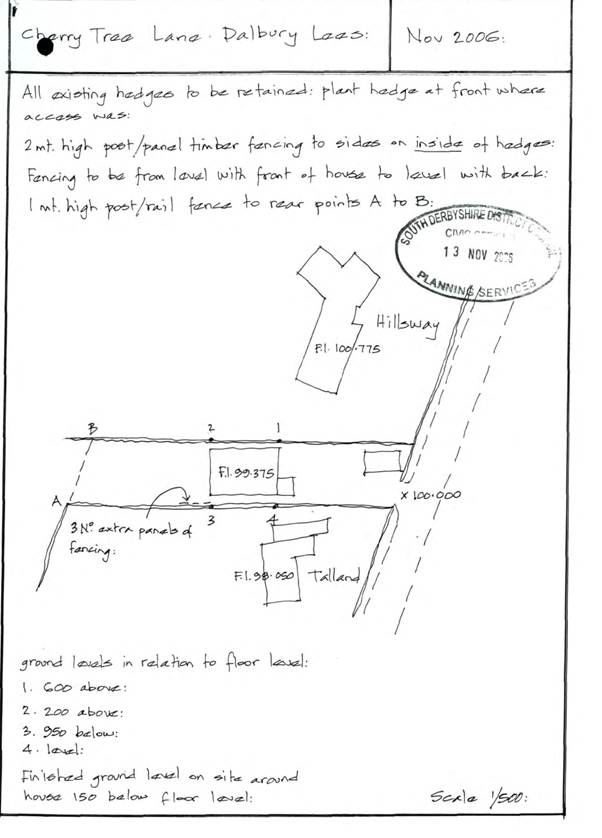 Cherry Tree Lane. Dalbury Lees:
Nov 2006:
All existing hedges to be retained: plant hedge at front where
access was:
2 mt. high post/panel timber fencing to sides on inside of hedges:
Fencing to be from level with front of house to level with back:
1 mt. high post/rail fence to rear points A to B:
SOUTH DERBYSHIRE DISTRICT
CIVIC
13 NOV 2006
PLANNING SERVICES
Hillsway
F.l. 100.775
B
2
1
F.l. 99.375
A
X 100.000
3
4
3 No extra panels of
fencing:
F.l. 98.050
Talland
ground levels in relation to floor level:
1. 600 above:
2. 200 above:
3. 950 below:
4. level:
Finished ground level on site around
house 150 below floor level:
Scale 1/500: